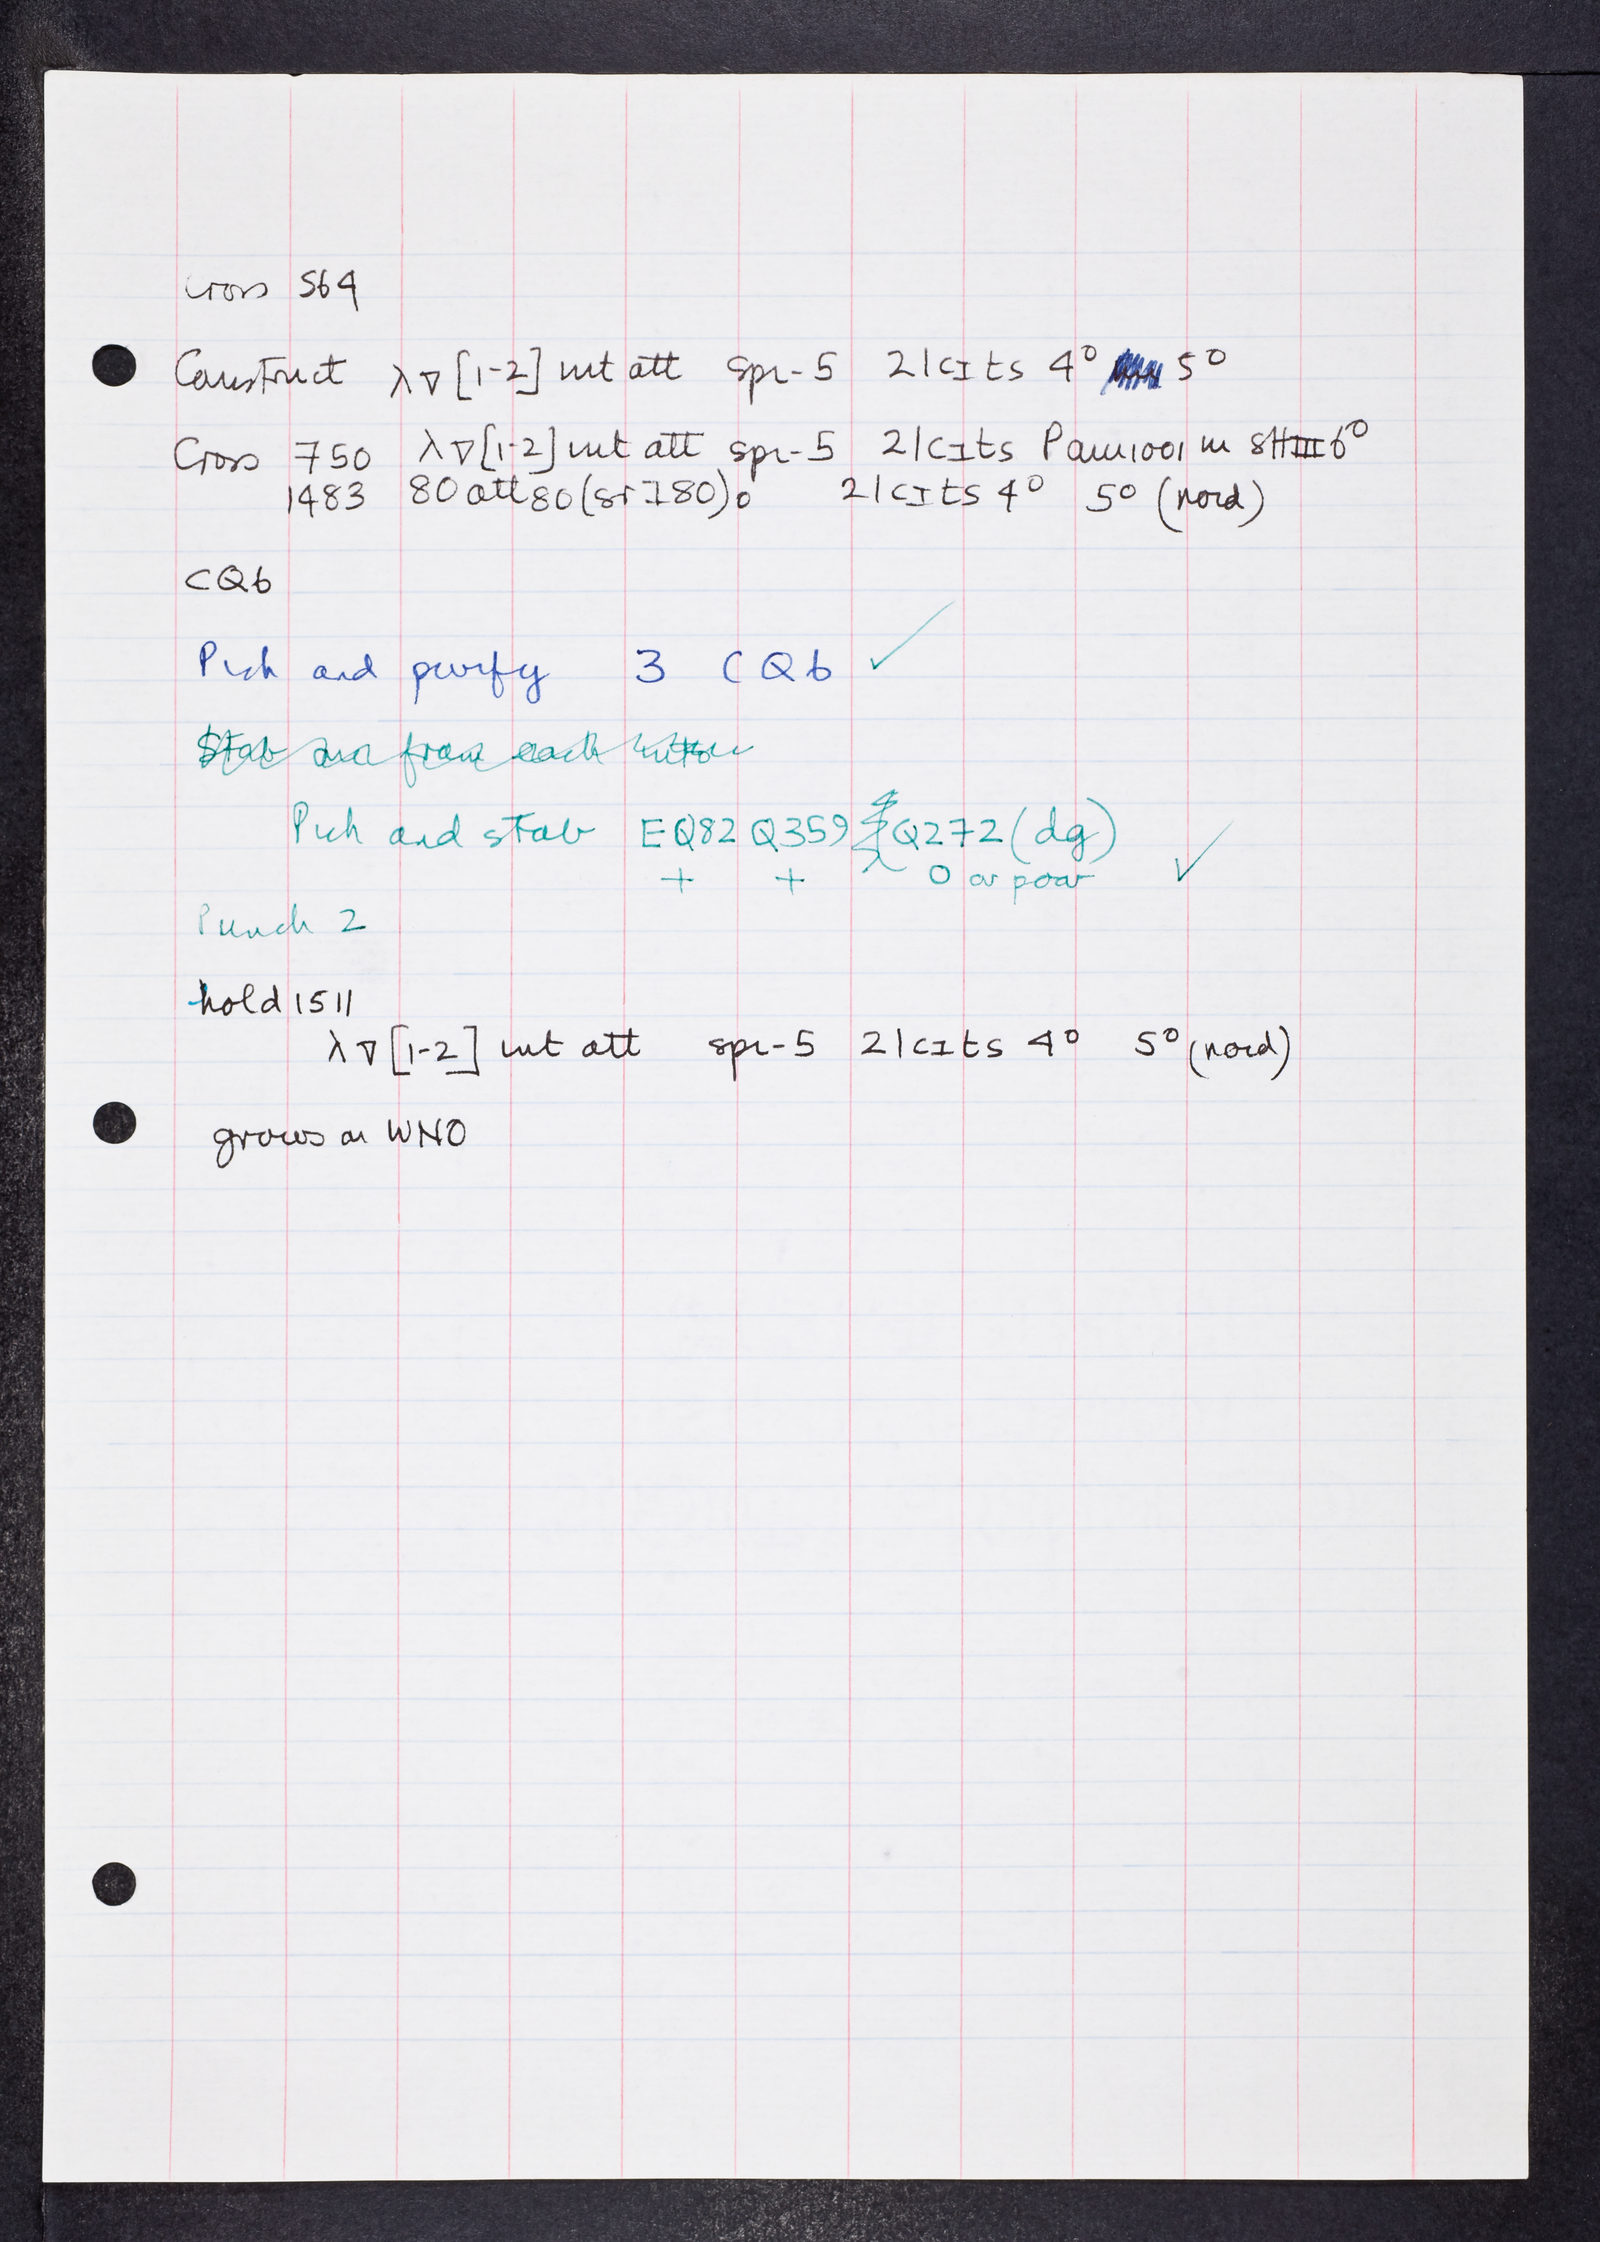 Cross 564
Construct λ∇[1-2] int att spi-5 21cIts 4° 5°
Cross 750 λ∇[1-2] int att spi-5 21cIts Pam1001 in sHIII6°
1483 80att80(srI80)° 21cIts 4° 5° (nord)
CQ6
Pick and purify 3 CQ6 ✓
Stab one from each
Pick and stab EQ82 Q359 Q272(dg)
+ + λ 0 or poor ✓
Punch 2
hold 1511
λ∇[1-2] int att spi-5 21cIts 4° 5° (nord)
grows on WNO